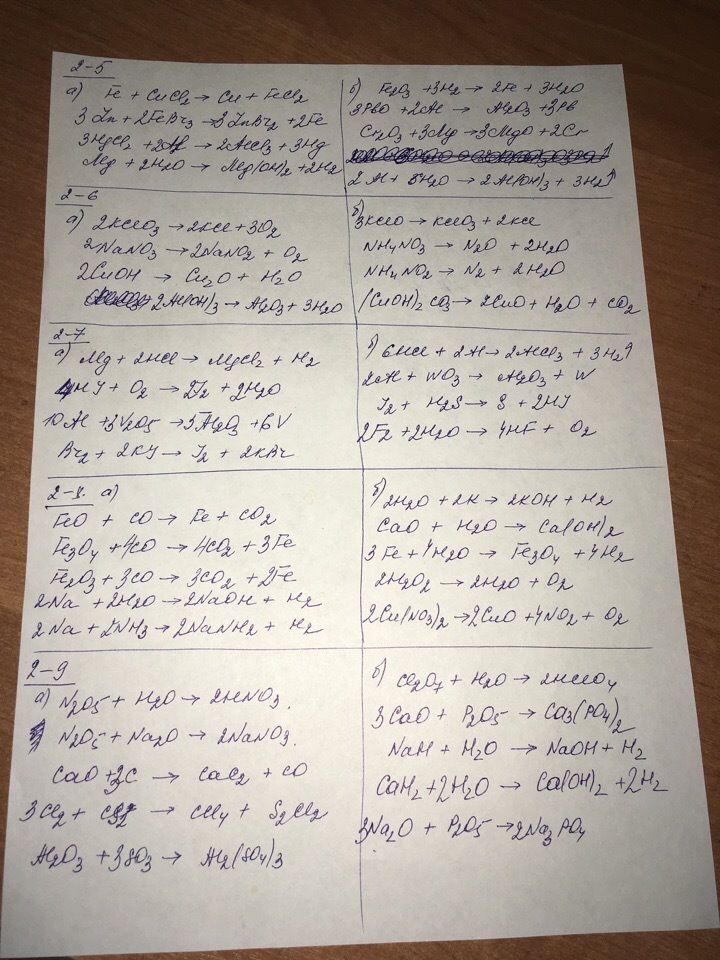 2-5
а) Fe + CuCl2 → Cu + FeCl2
3Zn + 2FeBr3 → 3ZnBr2 + 2Fe
3HgCl2 + 2Al → 2AlCl3 + 3Hg
Mg + 2H2O → Mg(OH)2 + 2H2
б) Fe2O3 + 3H2 → 2Fe + 3H2O
3PbO + 2Al → Al2O3 + 3Pb
Cr2O3 + 3Mg → 3MgO + 2Cr
2Al + 3H2O → 2Al(OH)3 + 3H2↑
2-6
а) 2KClO3 → 2KCl + 3O2
2NaNO3 → 2NaNO2 + O2
2CuOH → Cu2O + H2O
2Al(OH)3 → Al2O3 + 3H2O
б)
3KClO → KClO3 + 2KCl
NH4NO3 → N2O + 2H2O
NH4NO2 → N2 + 2H2O
(CuOH)2CO3 → 2CuO + H2O + CO2
2-7
а) Mg + 2HCl → MgCl2 + H2
4HJ + O2 → 2J2 + 2H2O
10Al + 3V2O5 → 5Al2O3 + 6V
Br2 + 2KJ → J2 + 2KBr
б) 6HCl + 2Al → 2AlCl3 + 3H2↑
2Al + WO3 → Al2O3 + W
J2 + H2S → S + 2HJ
2F2 + 2H2O → 4HF + O2
2-8. а)
FeO + CO → Fe + CO2
Fe3O4 + 4CO → 4CO2 + 3Fe
Fe2O3 + 3CO → 3CO2 + 2Fe
2Na + 2H2O → 2NaOH + H2
2Na + 2NH3 → 2NaNH2 + H2
б) 2H2O + 2K → 2KOH + H2
CaO + H2O → Ca(OH)2
3Fe + 4H2O → Fe3O4 + 4H2
2H2O2 → 2H2O + O2
2Cu(NO3)2 → 2CuO + 4NO2 + O2
2-9
а) N2O5 + H2O → 2HNO3.
N2O5 + Na2O → 2NaNO3.
CaO + 3C → CaC2 + CO
3Cl2 + CS2 → CCl4 + S2Cl2
Al2O3 + 3SO3 → Al2(SO4)3
б) Cl2O7 + H2O → 2HClO4
3CaO + P2O5 → Ca3(PO4)2
NaH + H2O → NaOH + H2
CaH2 + 2H2O → Ca(OH)2 + 2H2
3Na2O + P2O5 → 2Na3PO4